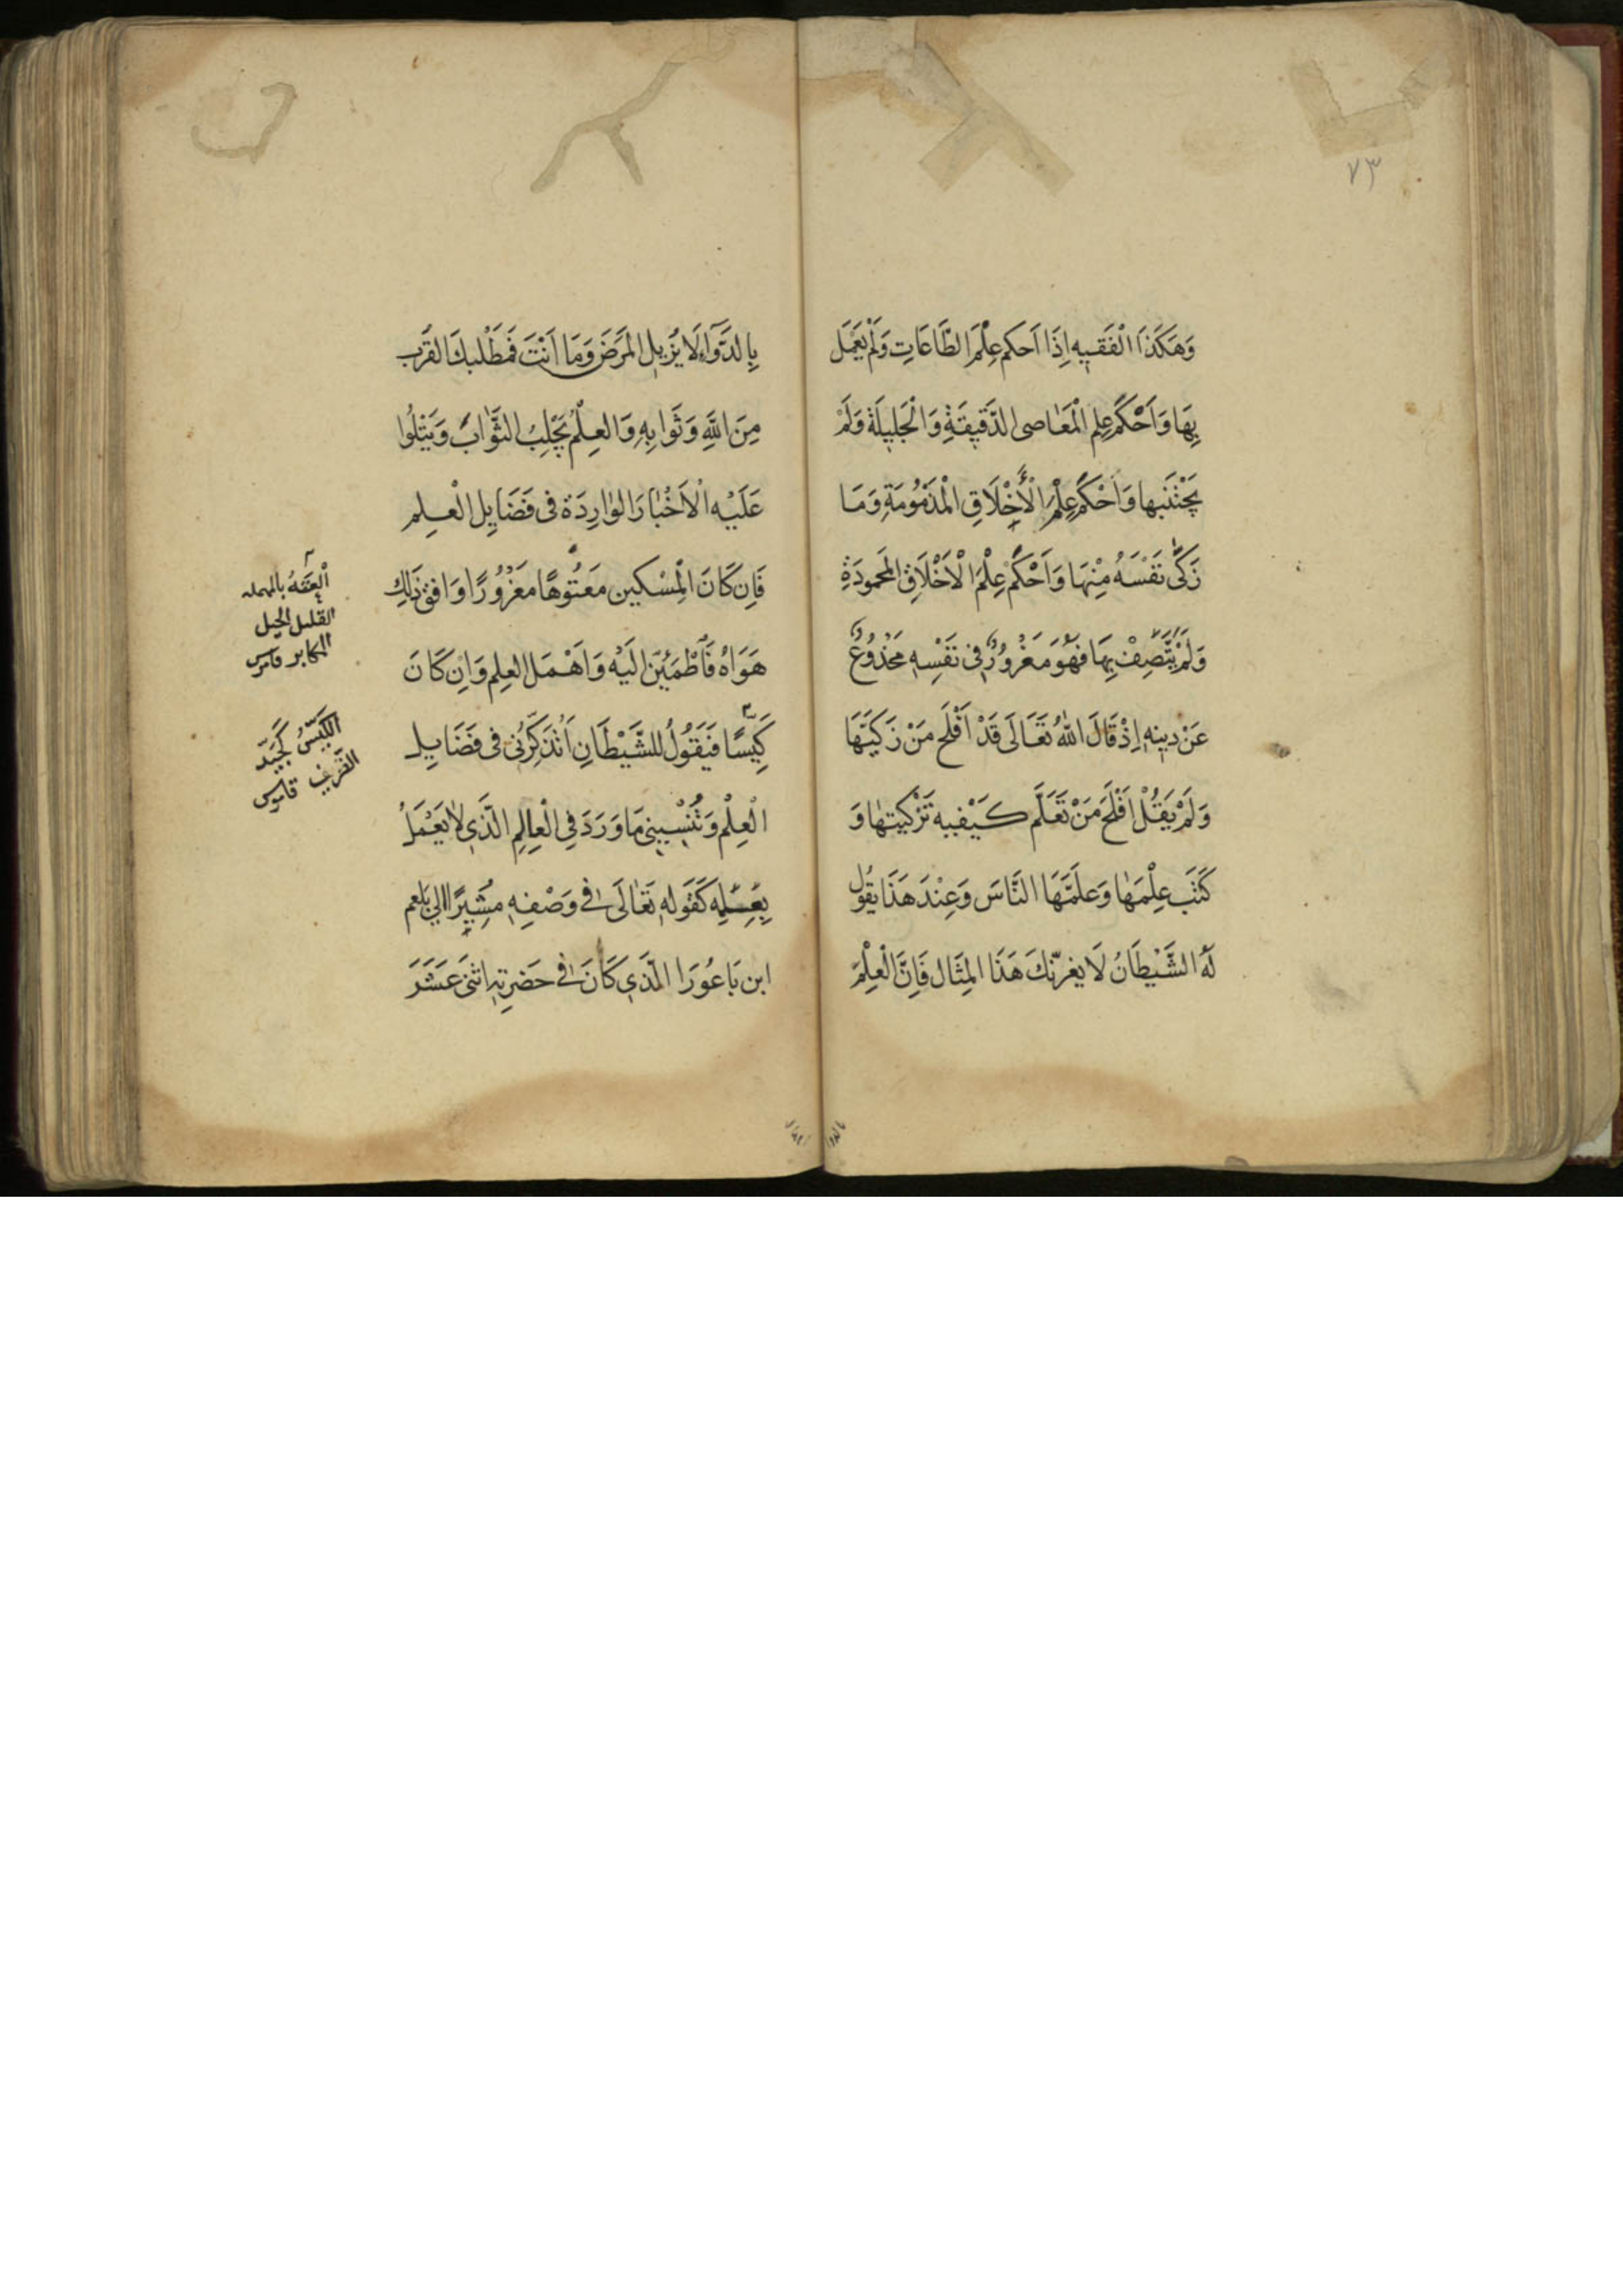 ٧٣
وَهَكَذَا الْفَقيِه اِذَا اَحكم عِلْمَ الطَّاعَاتِ وَلَمْ يَعْمَل
بِهَا وَاَحْكَمَ عِلم الْمَعَاصى الدَّقيِقَةِ وَالْجَليِلَة وَلَمْ
يَجْتَنبها وَاَحْكَمَ عِلْمَ الْأَخْلَاقِ الْمَذمُومَةِ وَمَا
زَكَّى نَفْسَهُ مِنْهَا وَاَحْكَمَ عِلْمَ الْاَخْلَاقِ المَحمودَةِ
وَلَمْ يَتَّصِفْ بِهَا فهُوَ مَغْرُورٌ فى نَفْسِهِ مَخْدُوعٌ
عَنْ دِينِهِ اِذْ قَالَ اللهُ تَعَالَى قَدْ اَفْلَح مَنْ زَكيَّهَا
وَلَمْ يَقُلْ اَفْلَحَ مَنْ تَعَلَّم كَيْفيه تَزْكيتهَا وَ
كَتَبَ عِلْمَهَا وَعَلَمَّهَا النَّاسَ وَعِنْدَ هَذَا يقُول
لَهُ الشَّيْطَانُ لَا يغرنّكَ هَذَا المِثَال فَاِنَّ الْعِلْمَ
بِالدَّوَآءِ لَا يُزيِل المَرَضَ وَمَا اَنْتَ فَمَطْلبكَ القَرب
مِنَ اللهِ وَثَوابِهِ وَالعِلْمُ يَجْلِبُ الثَّوَابَ وَيَتْلُوا
عَلَيْهِ الْاَخْبَارَ الوَارِدَة فى فَضَايِل الْعِلم
فَاِن كَانَ الْمِسْكين مَعتُوهًا مغْرُورًا وَافق ذَلِك
هَوَاهُ فَاَطْمَئِنَّ اِلَيْه وَاَهْمَل العِلم وَاِن كَانَ
كَيِّسًا فَيَقُولُ للشَّيْطَانِ اَتُذَكِّرُنى فى فَضَايِل
الْعِلْم وَتُنْسِينى مَا وَرَدَ فِى الْعِالِمِ الَّذِى لَا يَعْمَلُ
بِعِلمِهِ كَقَولهِ تَعَالَى فى وَصْفِهِ مُشِيِرًا الىِ بَلعم
ابن بَاعُورَا الَّذِى كَانَ فى حَضرِتهِ اثنى عَشَرَ
الْعتهُ بالمهمله
القليل الحيل
المكابر قاموس
الكَيّسُ كَجَيّد
الظريف قاموس